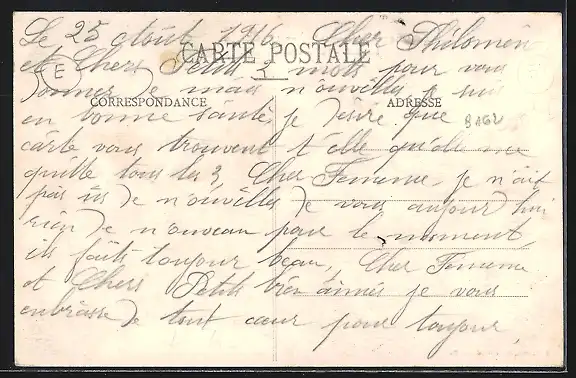 Le 25 Août 1916 Cher Philomen
CARTE POSTALE
et Chers Petits 1 mots pour vous
E
donner de mais n'ouvilles je suis
CORRESPONDANCE
ADRESSE
en bonne santé, je désire que
carte vous trouvent t'elle qu'elle me
quitte tous les 3, Cher Femme, je n'ait
pas us de n'ouvilles de vous aujour hui
rien de n'ouveau pour le moment,
ils fait toujour beau, Cher Femme
et Chers Petits bien aimés je vous
enbrasse de tout cœur pour toujour